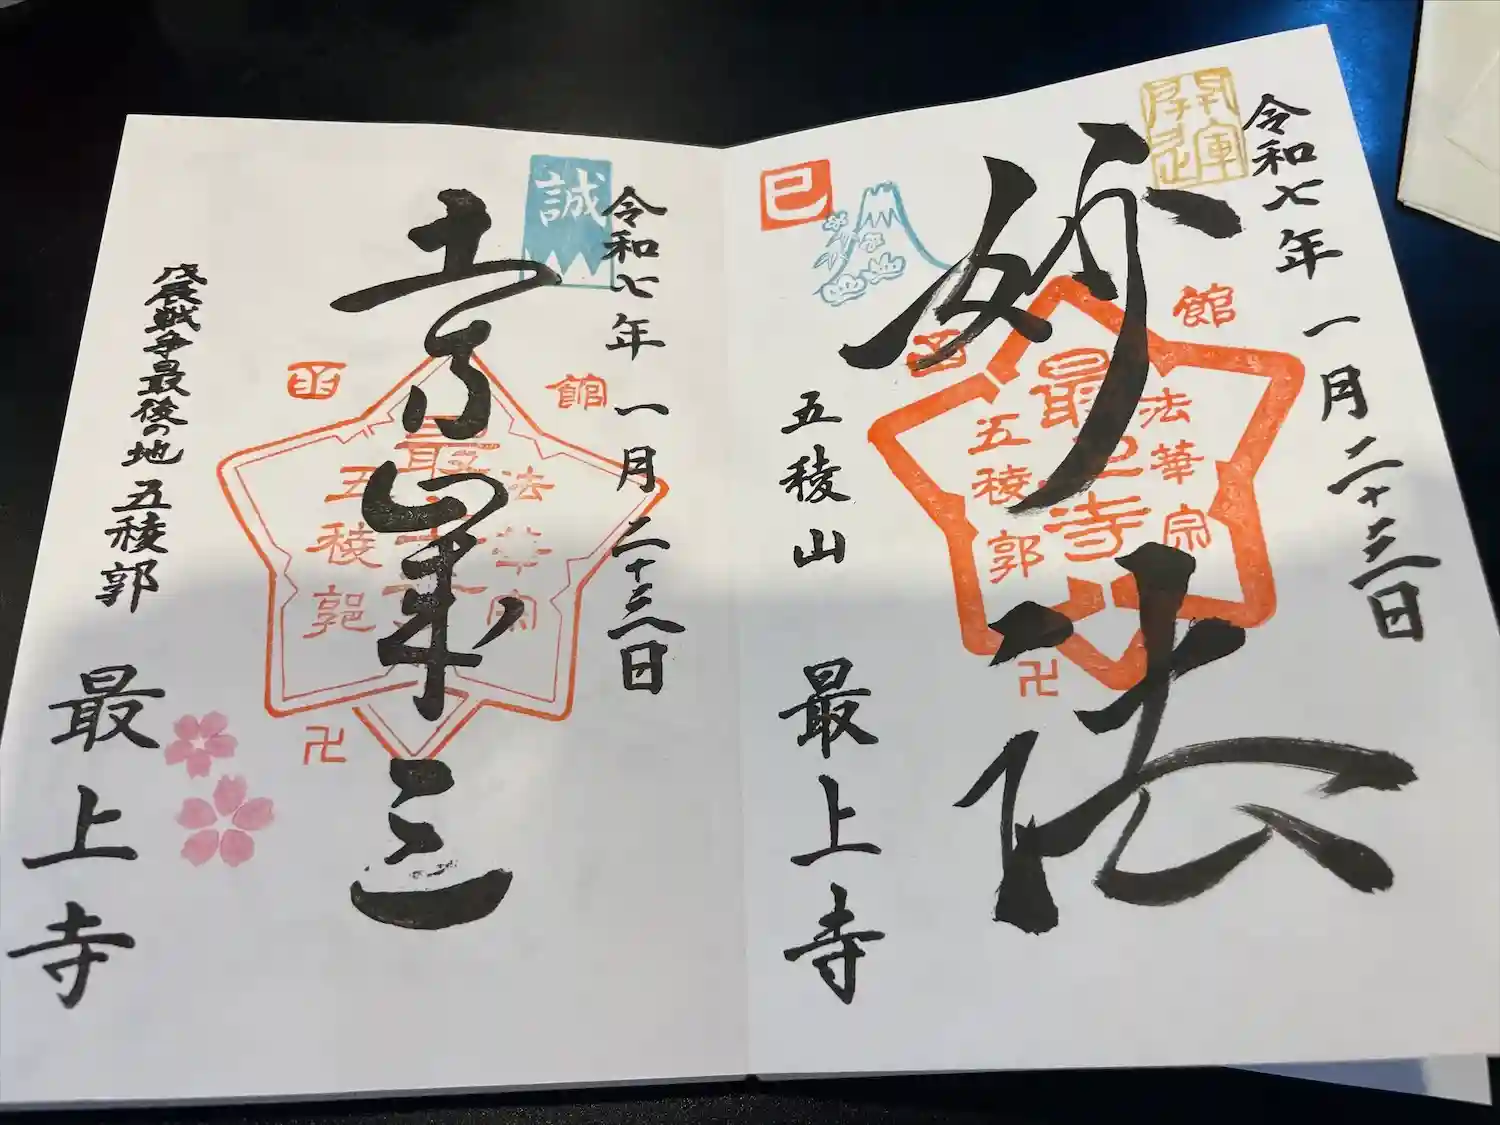 開運
令和七年一月二十三日
妙法
巳
函
館
法華宗
最上寺
五稜郭
卍
五稜山
最上寺
誠
令和七年一月二十三日
土方歳三
函
館
法華宗
最上寺
五稜郭
卍
戊辰戦争最後の地 五稜郭
最上寺